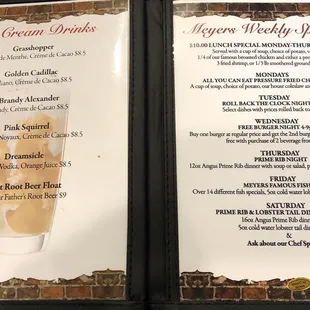 Cream Drinks
Grasshopper
de Menthe, Crème de Cacao $8.5
Golden Cadillac
Crème de Cacao $8.5
Brandy Alexander
Brandy, Crème de Cacao $8.5
Pink Squirrel
Noyaux, Crème de Cacao $8.5
Dreamsicle
Vodka, Orange Juice $8.5
Root Beer Float
Father's Root Beer $9
Meyers Weekly Sp
$10.00 LUNCH SPECIAL MONDAY-THU
Served with a cup of soup, choice of potato,
1/4 of our famous broasted chicken and either a pe
3 fried shrimp, or 1/3 lb smothered ground
MONDAYS
ALL YOU CAN EAT PRESSURE FRIED CH
A cup of soup, choice of potato, our house coleslaw an
TUESDAY
ROLL BACK THE CLOCK NIGHT
Select dishes with prices rolled back to
WEDNESDAY
FREE BURGER NIGHT 4-9
Buy one burger at regular price and get the 2nd burg
free with purchase of 2 beverage
THURSDAY
PRIME RIB NIGHT
12oz Angus Prime Rib dinner with soup or salad, p
FRIDAY
MEYERS FAMOUS FISH
Over 14 different fish specials, 5oz cold water lobster
SATURDAY
PRIME RIB & LOBSTER TAIL DI
16oz Angus Prime Rib dinn
5oz cold water lobster tail di
&
Ask about our Chef Sp